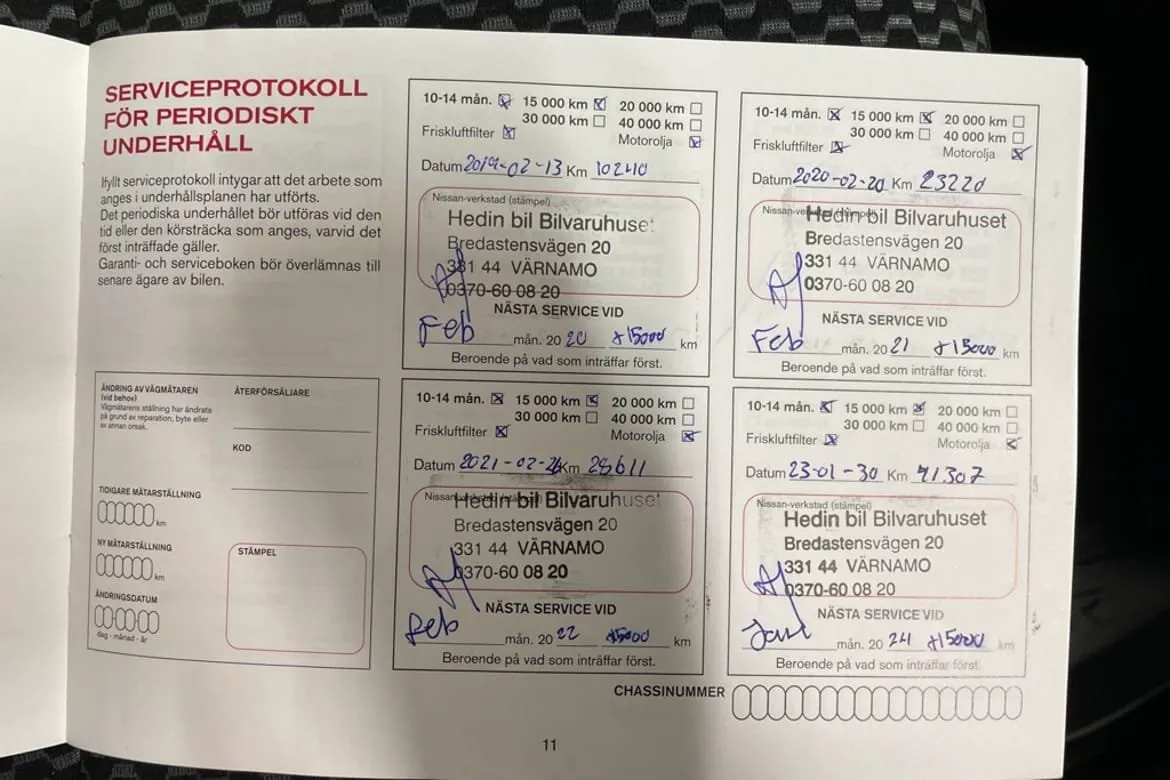 SERVICEPROTOKOLL
FÖR PERIODISKT
UNDERHÅLL
Ifyllt serviceprotokoll intygar att det arbete som
anges i underhållsplanen har utförts.
Det periodiska underhållet bör utföras vid den
tid eller den körsträcka som anges, varvid det
först inträffade gäller.
Garanti- och serviceboken bör överlämnas till
senare ägare av bilen.
ÄNDRING AV VÄGMÄTAREN
(vid behov)
Vägmätarens ställning har ändrats
på grund av reparation, byte eller
av annan orsak.
TIDIGARE MÄTARSTÄLLNING
km
NY MÄTARSTÄLLNING
km
ÄNDRINGSDATUM
dag - månad - år
ÅTERFÖRSÄLJARE
KOD
STÄMPEL
10-14 mån. 15 000 km 20 000 km
30 000 km 40 000 km
Friskluftfilter Motorolja
Datum 2019-02-13 Km 10240
Nissan-verkstad (stämpel)
Hedin bil Bilvaruhuset
Bredastensvägen 20
331 44 VÄRNAMO
0370-60 08 20
NÄSTA SERVICE VID
Feb mån. 20 20 +15000 km
Beroende på vad som inträffar först.
10-14 mån. 15 000 km 20 000 km
30 000 km 40 000 km
Friskluftfilter Motorolja
Datum 2020-02-20 Km 23220
Nissan-verkstad (stämpel)
Hedin bil Bilvaruhuset
Bredastensvägen 20
331 44 VÄRNAMO
0370-60 08 20
NÄSTA SERVICE VID
Feb mån. 20 21 +15000 km
Beroende på vad som inträffar först.
10-14 mån. 15 000 km 20 000 km
30 000 km 40 000 km
Friskluftfilter Motorolja
Datum 2021-02-26 Km 28611
Nissan-verkstad (stämpel)
Hedin bil Bilvaruhuset
Bredastensvägen 20
331 44 VÄRNAMO
0370-60 08 20
NÄSTA SERVICE VID
Feb mån. 20 22 +15000 km
Beroende på vad som inträffar först.
10-14 mån. 15 000 km 20 000 km
30 000 km 40 000 km
Friskluftfilter Motorolja
Datum 23-01-30 Km 41.307
Nissan-verkstad (stämpel)
Hedin bil Bilvaruhuset
Bredastensvägen 20
331 44 VÄRNAMO
0370-60 08 20
NÄSTA SERVICE VID
Jan mån. 20 24 +15000 km
Beroende på vad som inträffar först.
CHASSINUMMER
11